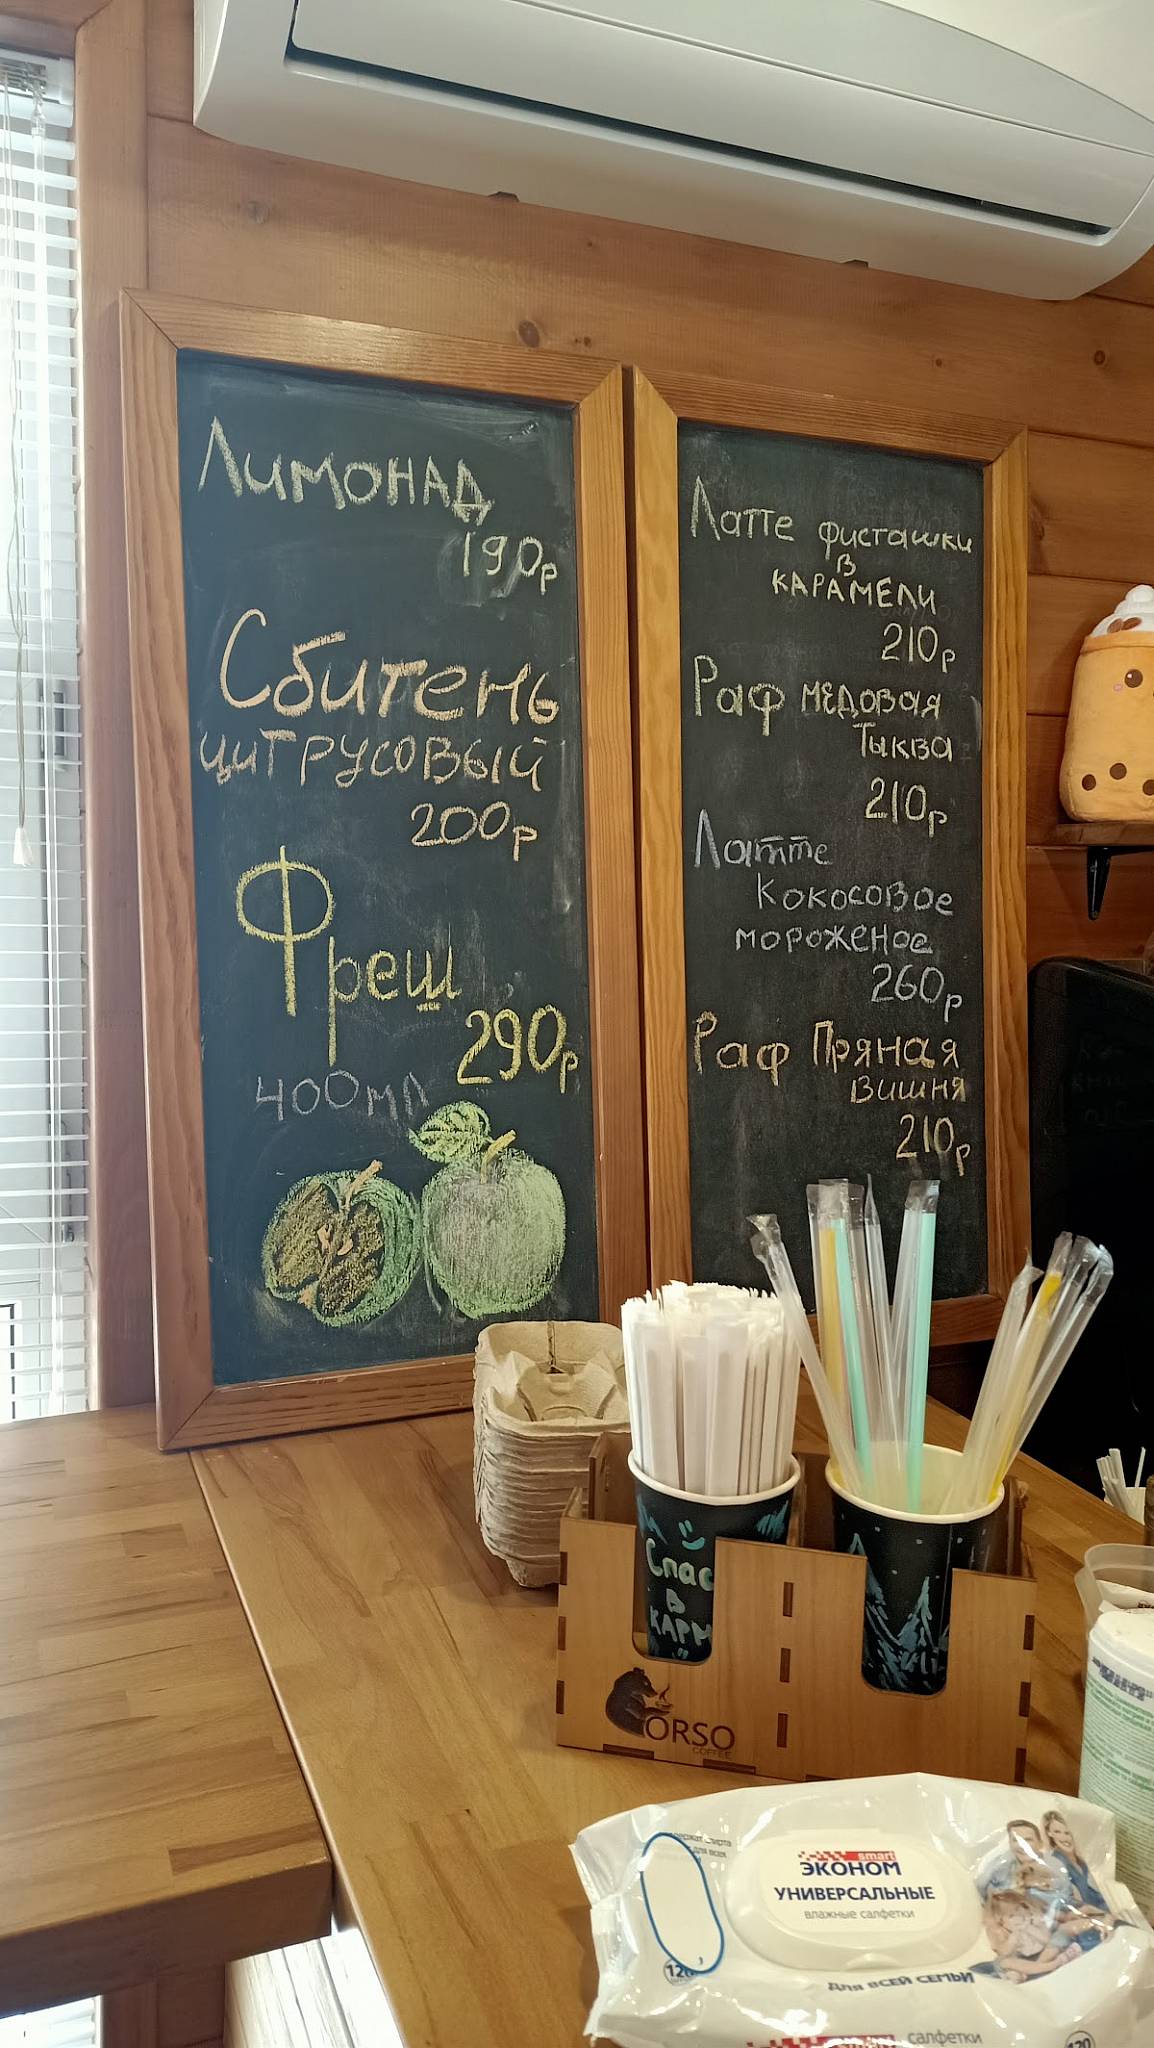 Лимонад
190р
Сбитень
цитрусовый
200р
Фреш
290р
400мл
Латте фисташки
в
карамели
210р
Раф медовая
Тыква
210р
Латте
Кокосовое
мороженое
260р
Раф Пряная
вишня
210р
Спас
в
карм
ORSO
COFFEE
smart
ЭКОНОМ
УНИВЕРСАЛЬНЫЕ
влажные салфетки
для всей семьи
салфетки
120